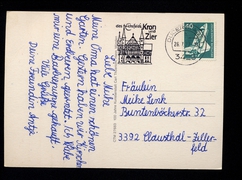 Liebe Meike
Meine Oma hat einen schönen
Garten. Gestern haben wir Kirschen
und Erdbeeren gepflückt. Ich habe
nur eine
gehabt.
Viele Grüße
Deine Freundin Antje
Kron
Zier
Fräulein
Meike Link
Buntenböckerstr. 32
3392 Clausthal-Zeller-
feld